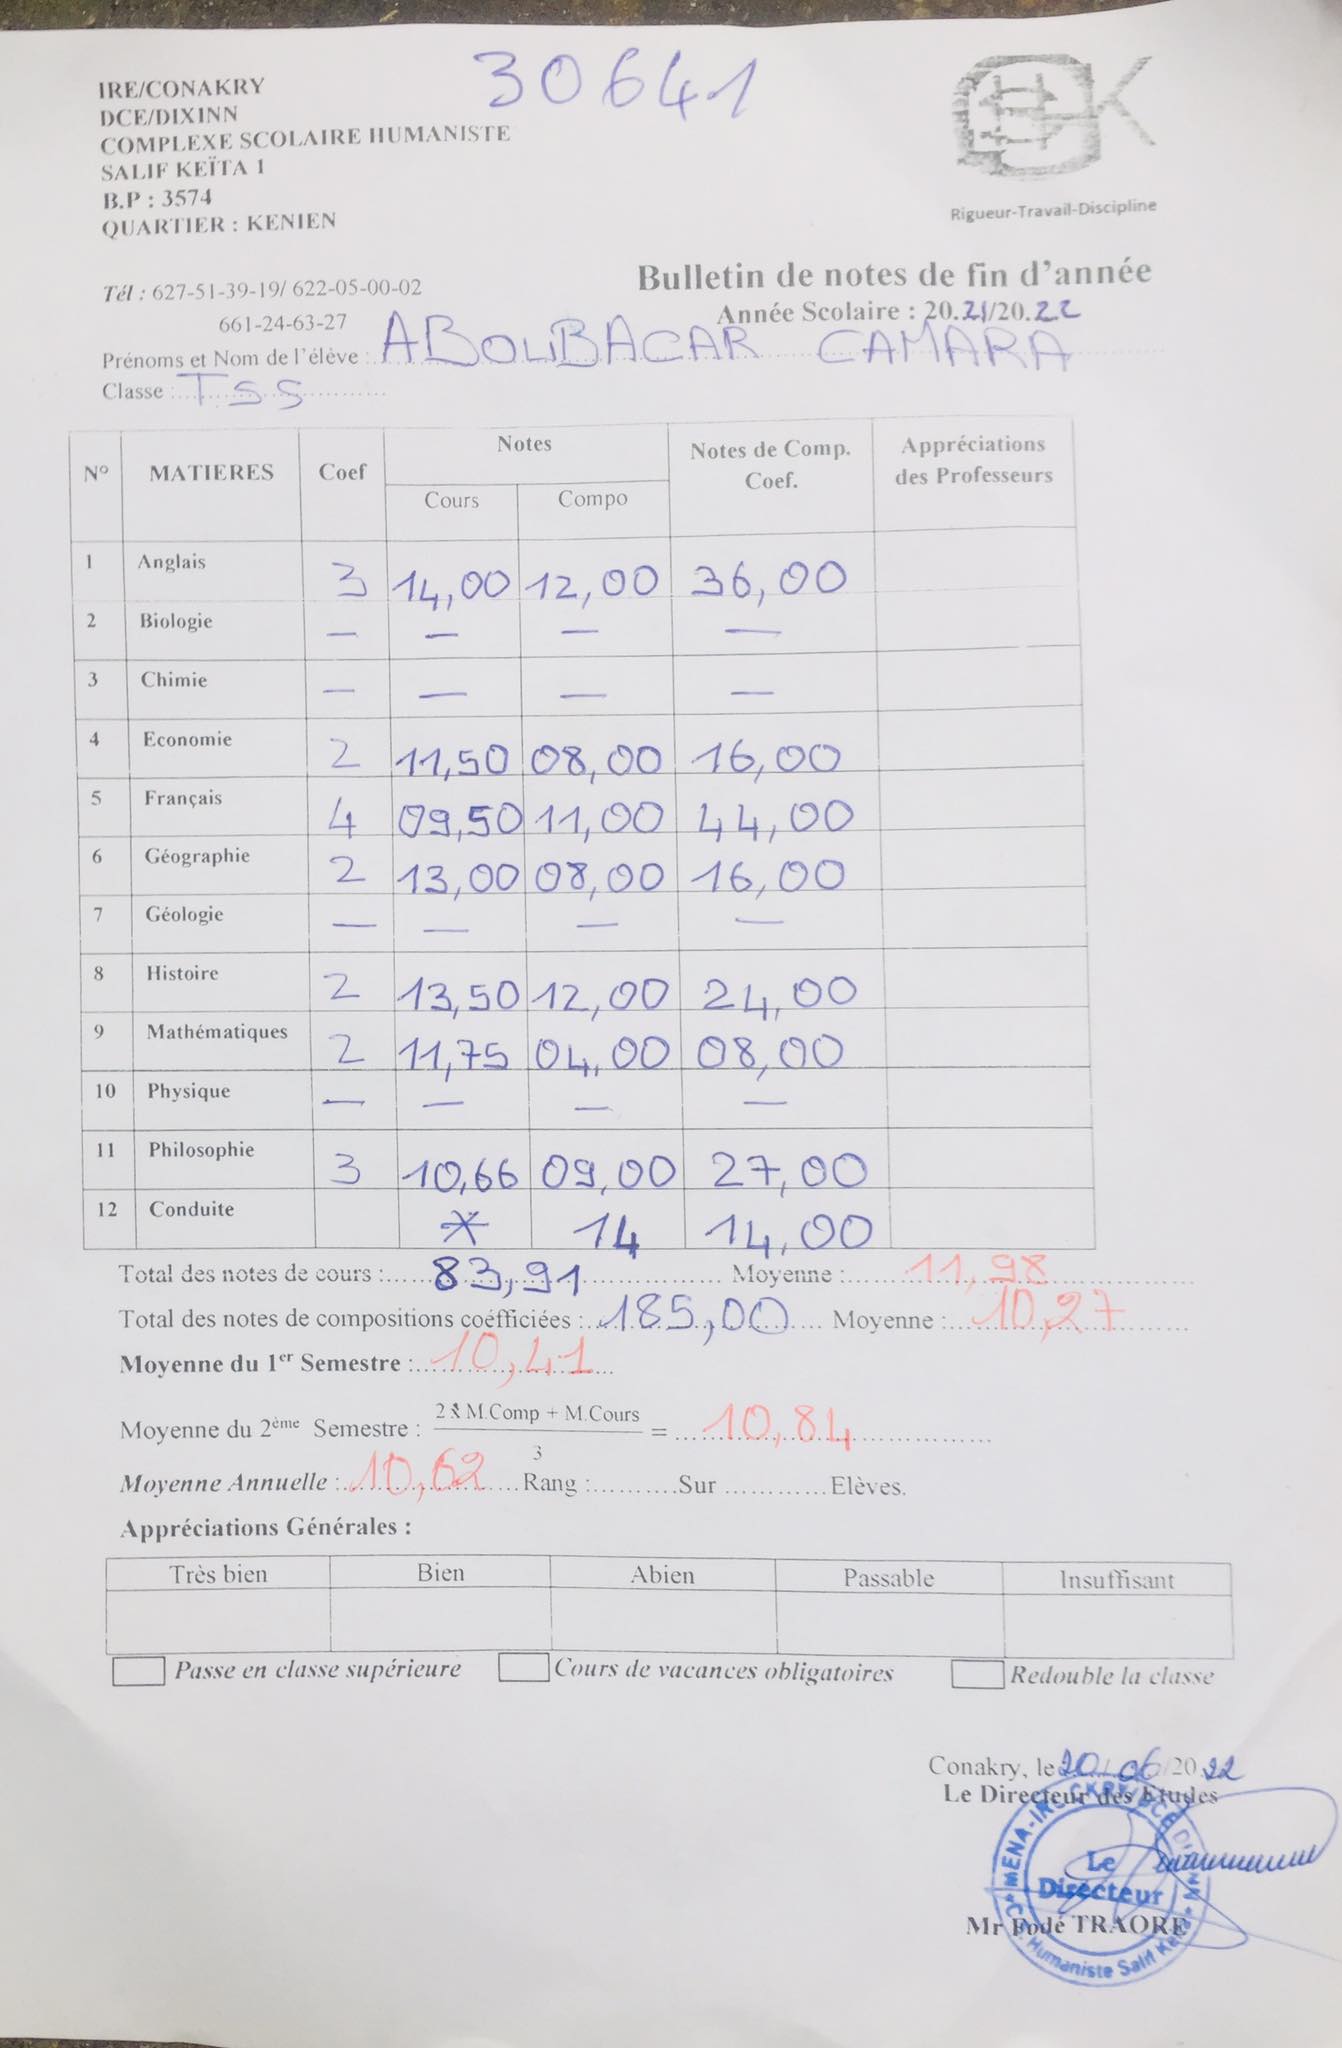 30641
IRE/CONAKRY
DCE/DIXINN
COMPLEXE SCOLAIRE HUMANISTE
SALIF KEÏTA 1
B.P : 3574
QUARTIER : KENIEN
Rigueur-Travail-Discipline
Bulletin de notes de fin d'année
Tél : 627-51-39-19/ 622-05-00-02
661-24-63-27
Année Scolaire : 20.21/20.22
Prénoms et Nom de l'élève : ABOUBACAR CAMARA
Classe : TSS
N° MATIERES Coef Notes Notes de Comp. Coef. Appréciations des Professeurs
Cours Compo
1 Anglais 3 14,00 12,00 36,00
2 Biologie — — — —
3 Chimie — — — —
4 Economie 2 11,50 08,00 16,00
5 Français 4 09,50 11,00 44,00
6 Géographie 2 13,00 08,00 16,00
7 Géologie — — — —
8 Histoire 2 13,50 12,00 24,00
9 Mathématiques 2 11,75 04,00 08,00
10 Physique — — — —
11 Philosophie 3 10,66 09,00 27,00
12 Conduite * 14 14,00
Total des notes de cours : 83,91 Moyenne : 11,98
Total des notes de compositions coéfficiées : 185,00 Moyenne : 10,27
Moyenne du 1er Semestre : 10,41
Moyenne du 2ème Semestre : 2 x M.Comp + M.Cours / 3 = 10,84
Moyenne Annuelle : 10,62 Rang :..........Sur ............Elèves.
Appréciations Générales :
Très bien Bien Abien Passable Insuffisant
Passe en classe supérieure Cours de vacances obligatoires Redouble la classe
Conakry, le 20/06/2022
Le Directeur des Etudes
Le Directeur
Mr Fodé TRAORE
Humaniste Salif Keita